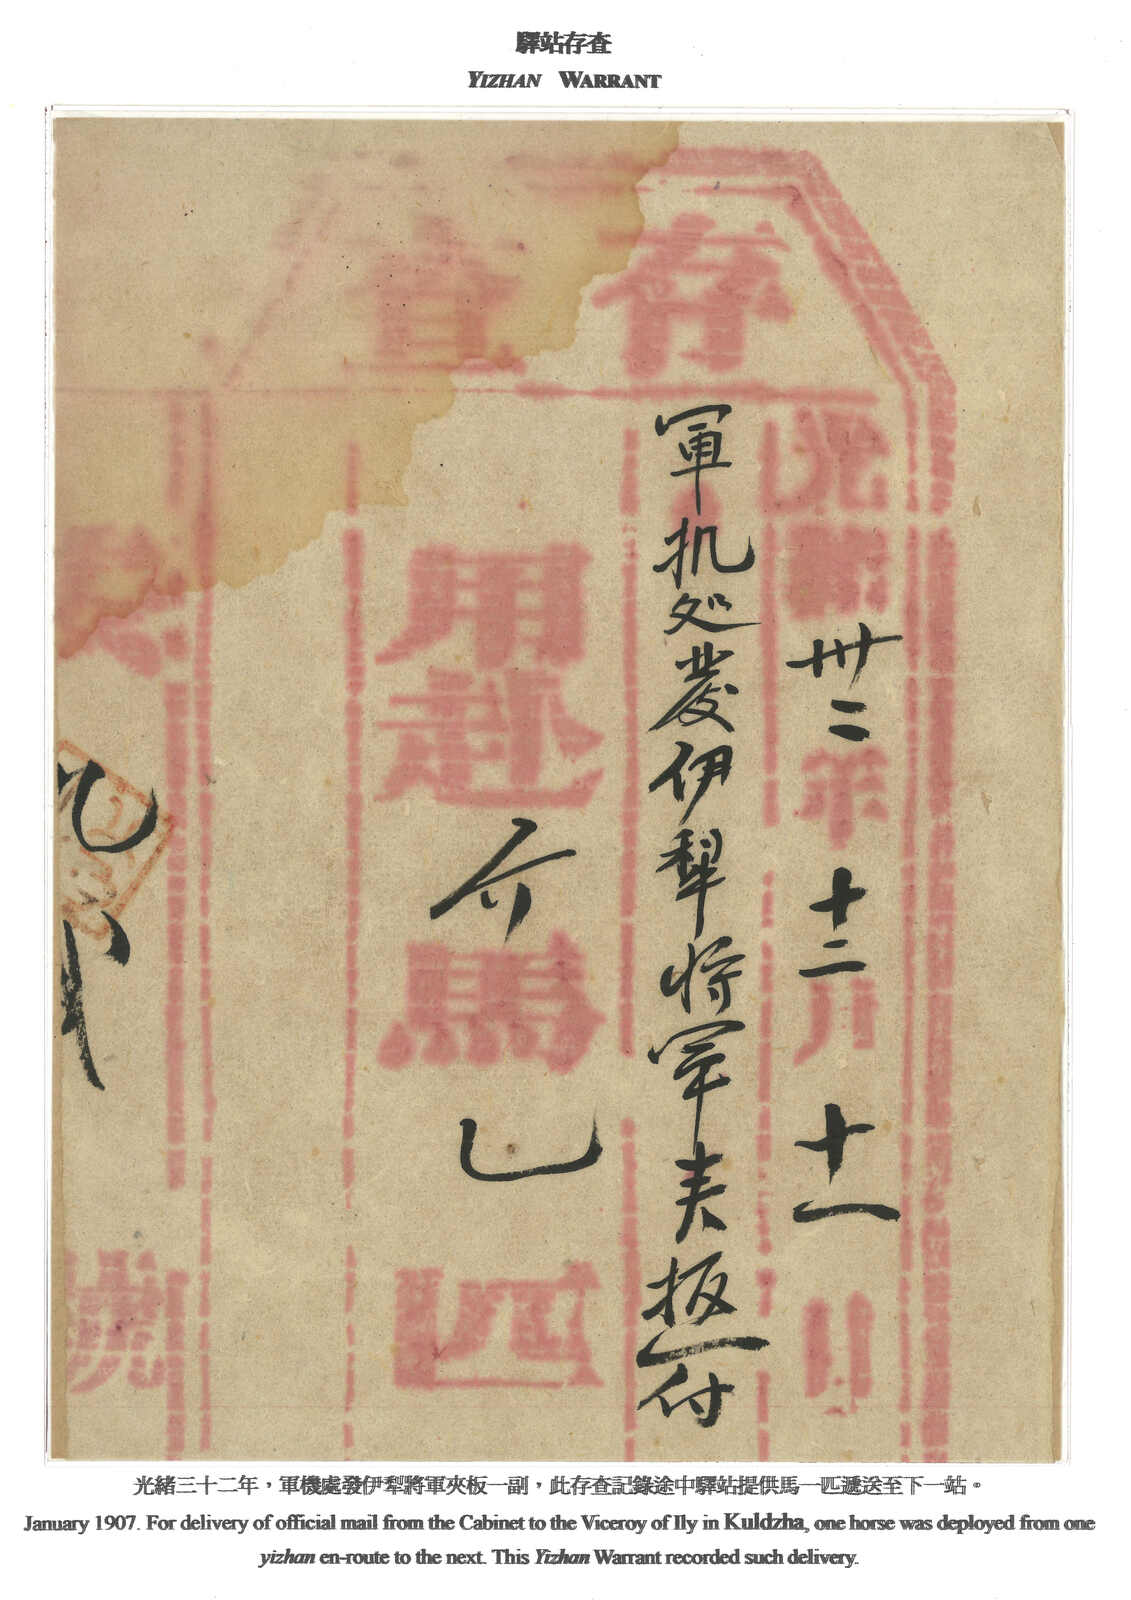 驛站存查
YIZHAN WARRANT
存查
光緒卅二年十二月十一日
軍机处发伊犂将军夹板一付
用赴
馬
匹
號
光緒三十二年，軍機處發伊犂將軍夾板一副，此存查記錄途中驛站提供馬一匹遞送至下一站。
January 1907. For delivery of official mail from the Cabinet to the Viceroy of Ily in Kuldzha, one horse was deployed from one
yizhan en-route to the next. This Yizhan Warrant recorded such delivery.